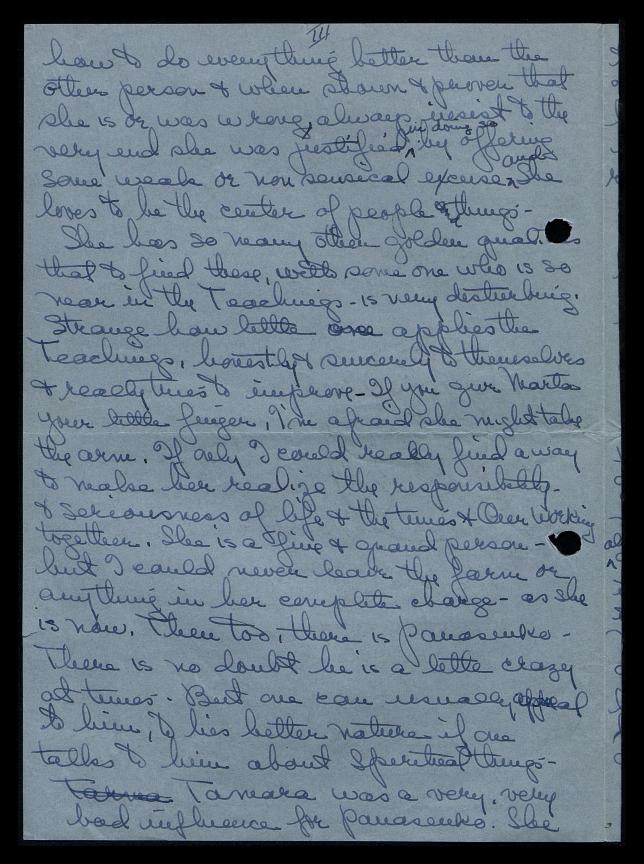 III
how to do everything better than the
other person & when shown & proven that
she is or was wrong, always insist to the
very end she was justified ^in doing so by offering
some weak or non sensical excuse ^and She
loves to be the center of people & things -
She has so many other golden qualities
that to find these, with some one who is so
near in the Teachings - is very disturbing.
Strange how little one applies the
Teachings, honestly & sincerely to themselves
& really tries to improve - If you give Marta
your little finger, I'm afraid she might take
the arm. If only I could really find a way
to make her realize the responsibility -
& seriousness of life & the times & Our working
together. She is a fine & grand person -
but I could never leave the farm or
anything in her complete charge - as she
is now. Then too, there is Panasenko -
There is no doubt he is a little crazy
at times. But one can usually appeal
to him, to his better nature if one
talks to him about Spiritual things -
Tamara was a very, very
bad influence for Panasenko. She